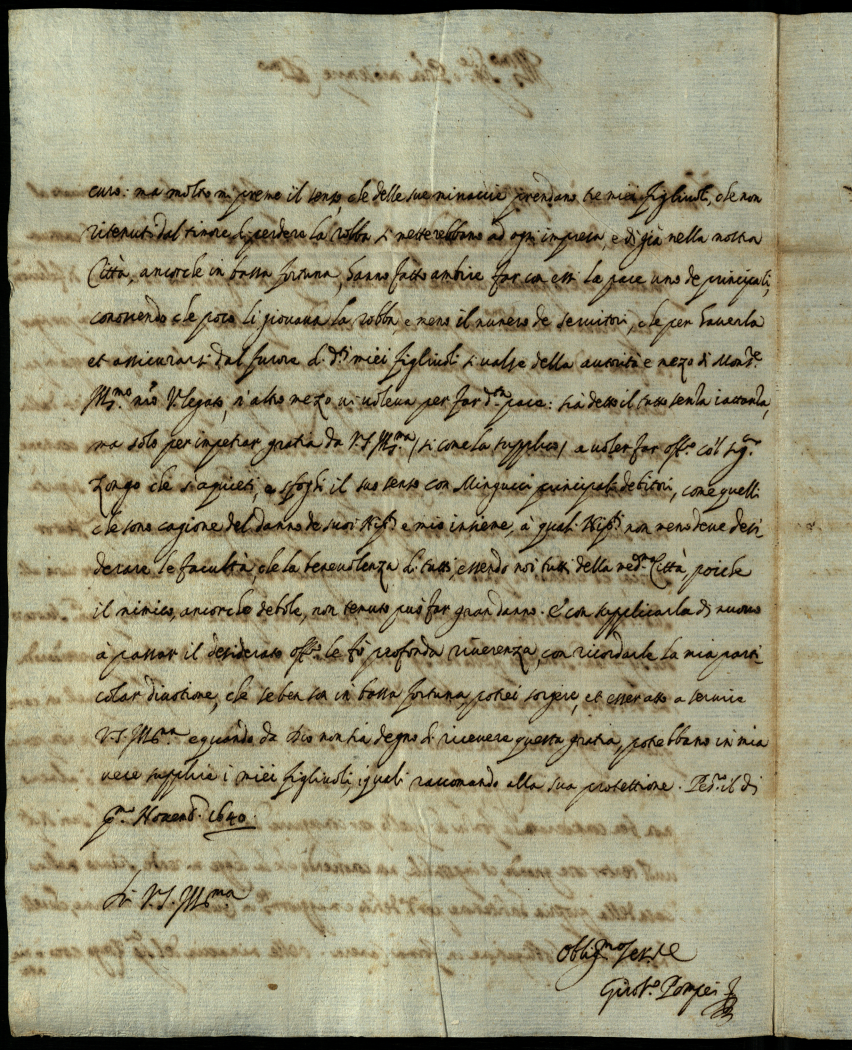 curo: ma molto mi preme il senso, che delle sue minaccie prendano tre miei figliuoli, che non
ritenuti dal timore di perdere la robba si metterebbono ad ogni impresa, e di già nella nostra
Città, ancorche in bassa fortuna, hanno fatto ambire far con essi la pace uno de principali,
conoscendo che poco li giovava la robba, e meno il numero de servitori, che per haverla
et assicurarsi dal furore di d.ti miei figliuoli si valse della autorità e mezo di Mons.re
Ill.mo n̄ro V.legato, n'altro mezo vi voleva per far d.ta pace: sia detto il tutto senza iattanza,
ma solo per impetrar gratia da V.S. Ill.ma (si come la supplico) a voler far off.o co'l Sig.r
Longo che s'aquieti, e sfoghi il suo senso con Mingucci principale debitori, come quelli
che sono cagione del danno de suoi Nip.ti e mio insieme, a quali Nip.ti non meno deve desi-
derare le facultà, che la benevolenza di tutti, essendo noi tutti della med.ma Città, poiche
il nimico, ancorche debole, non temuto può far gran danno. E con supplicarla di nuovo
à passar il desiderato off.o le fò profonda riverenza, con ricordarle la mia parti-
colar divotione, che se ben son in bassa fortuna, potrei sorgere, et esser atto a servire
V.S. Ill.ma e quando da Dio non sia degno di ricevere questa gratia, potrebbano in mia
vece supplire i miei figliuoli, i quali raccomando alla sua protettione. il di
Novemb. 1640.
Di V.S. Ill.ma
Oblig.mo Ser.re
Pompei